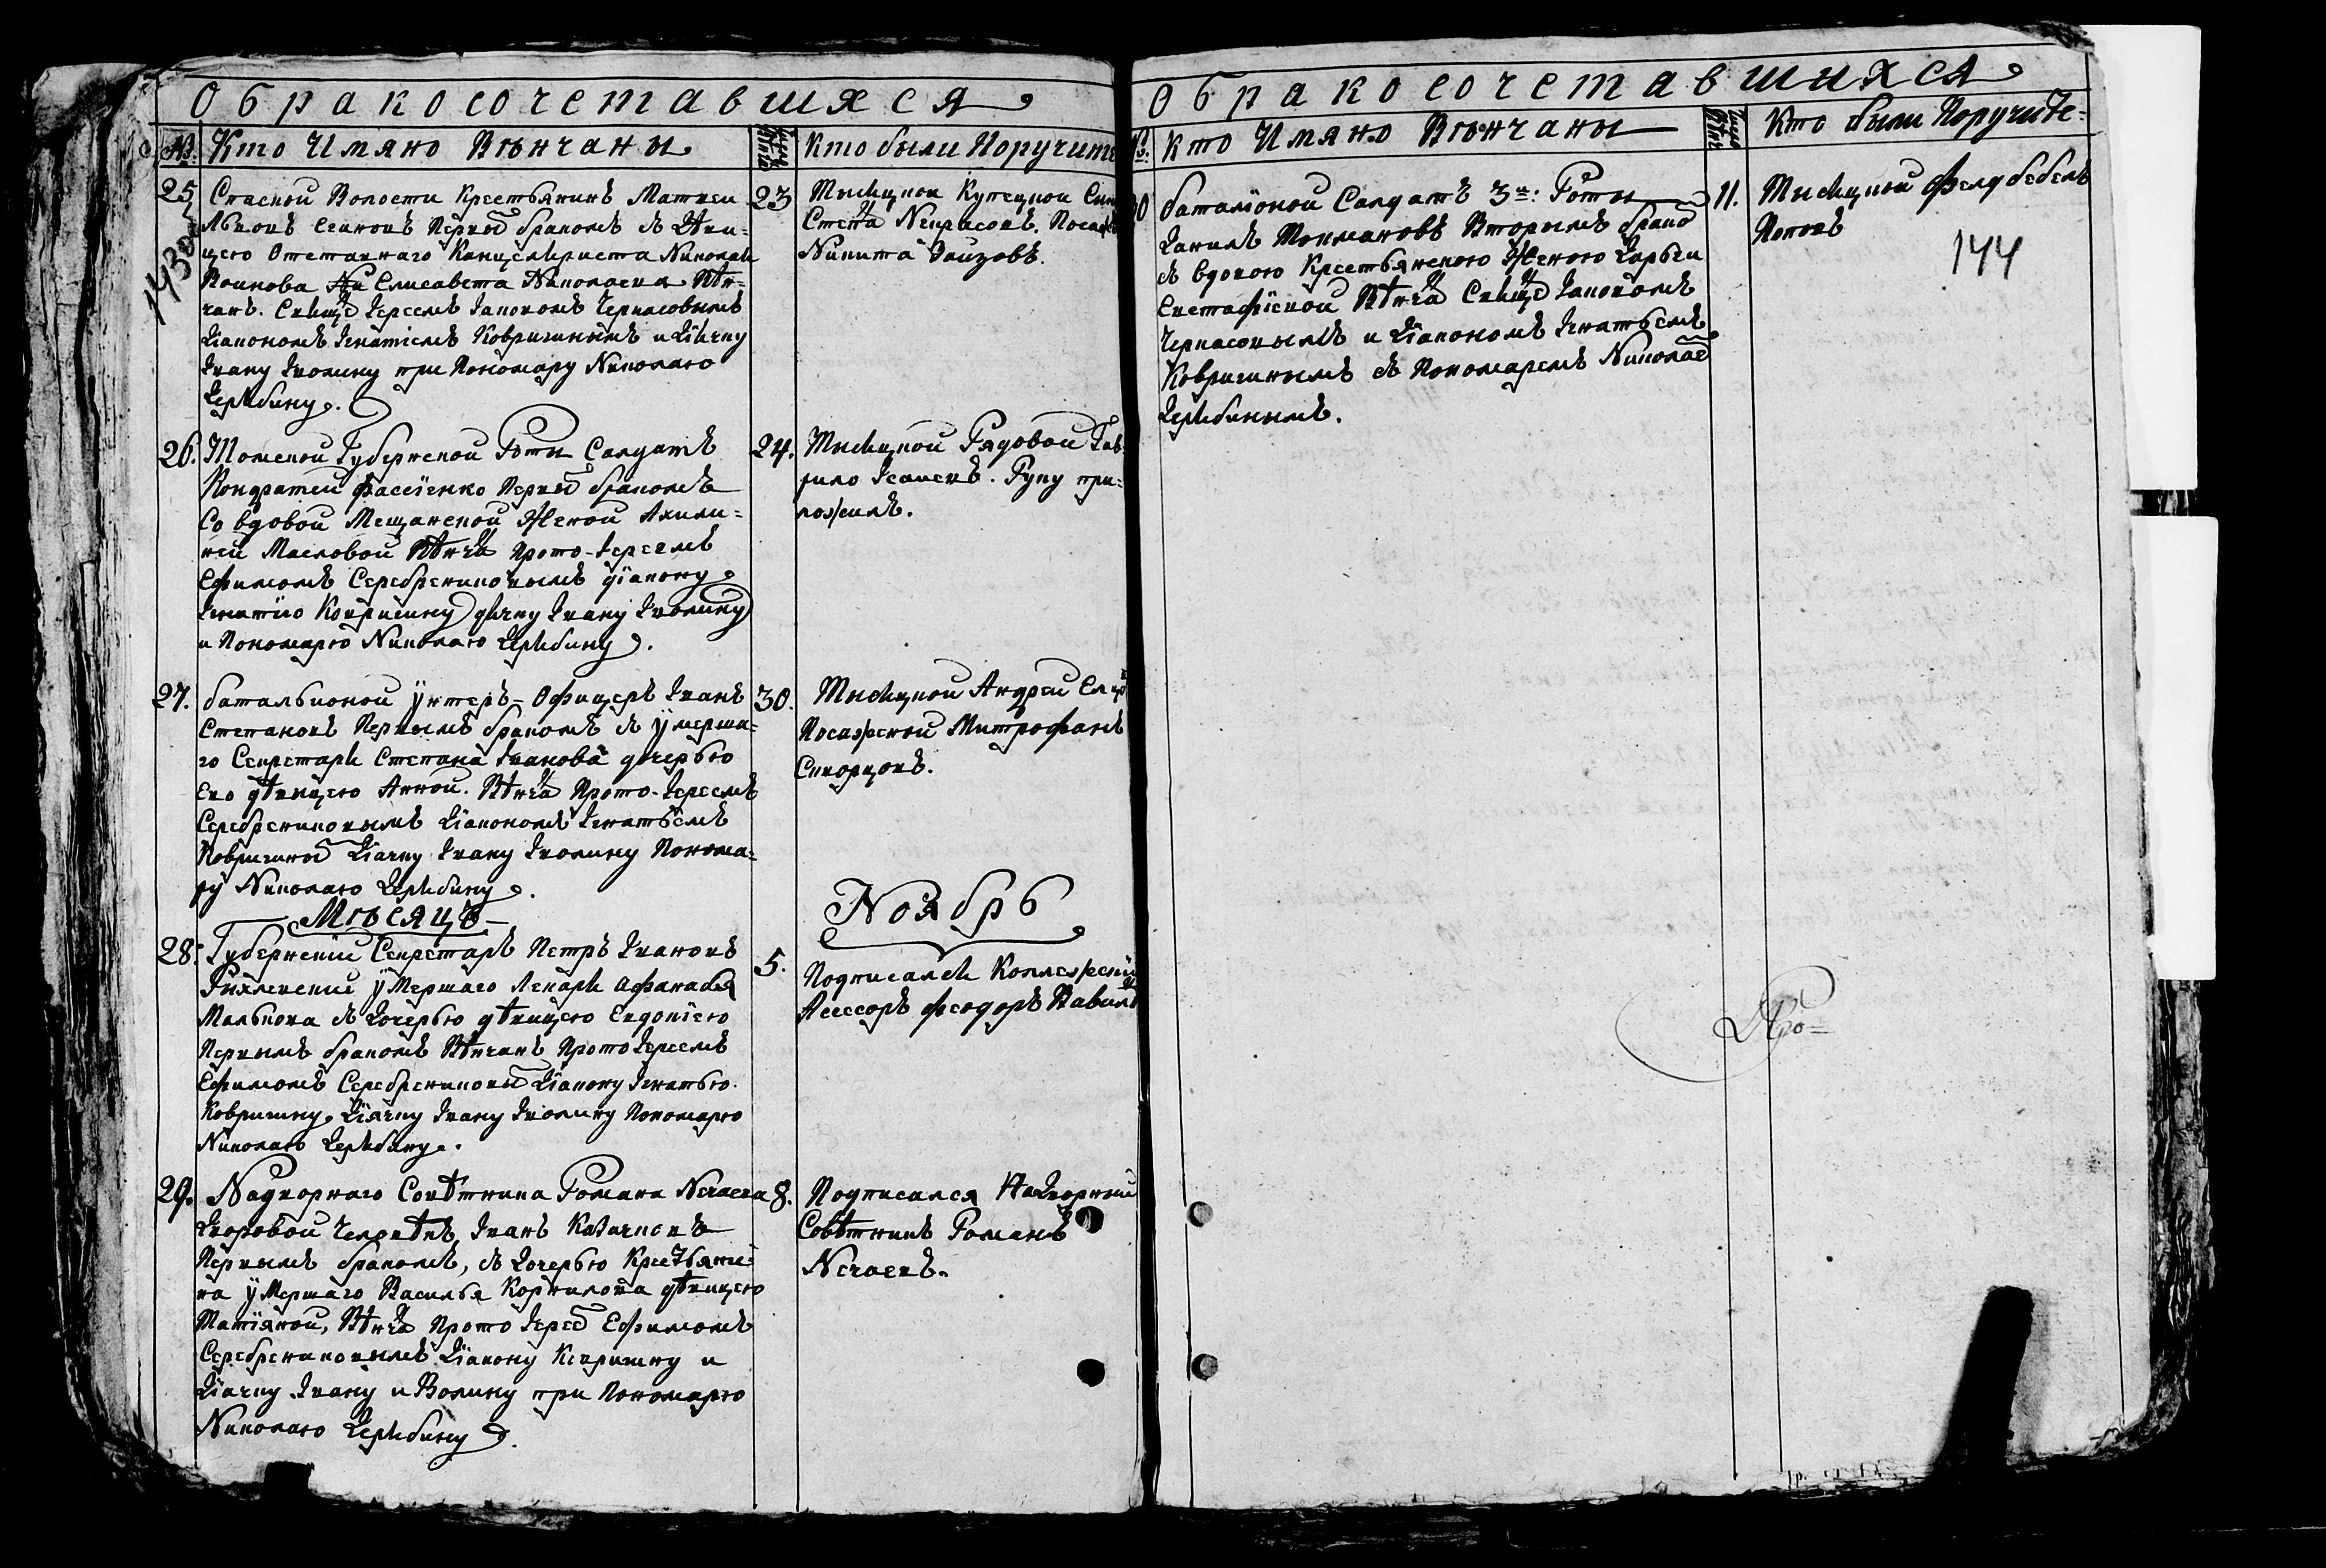 О бракосочетавшихся
№: Кто Имяно Венчаны Число Кто были Поручите
25 Спаской Волости Крестьянинъ Матвеи
Львовъ Сенновъ Первы бракомъ съ деви-
цею Отставнаго Канцеляриста Николая
Воинова Елисавета Николаевна Вѣн-
чанъ. Свящ Иереемъ Иаковомъ Черкасовымъ
Діакономъ Игнатіемъ Ковригинымъ и Дьячку
Ивану Иволину при Пономару Николаю
Дерябину.
23 Томской Купецкой Сын
Степа Некрасовъ. Посад
Никита
143об
26. Томской Губернской Роты Салдатъ
Кондратеи Фассіенко Первы бракомъ
Со вдовой Мещанской Женой Акили-
ней Масловой Вѣнча Прото-Иереемъ
Ефимомъ Серебрениковымъ діакону
Игнатію Ковригину дьячку Ивану Иволину
и Пономарю Николаю Дерябину.
24. Рядовой Гав-
рило Исаевъ. Руку при-
ложилъ.
27. баталіоной Унтеръ-Офицеръ Иванъ
Степановъ Первымъ бракомъ съ Умерша-
го Секретаря Степана Иванова дочерью
Ево дѣвицею Анной. Вѣнча Прото-Иереемъ
Серебрениковымъ Діакономъ Игнатьемъ
Ковригины Діачку Ивану Иволину Понома-
ру Николаю Дерябину.
30. Андреи
Посадской Митрофанъ
Скорцовъ.
Мѣсяцъ Ноябрь
28. Губернскіи Секретарь Петръ Ивановъ
Умершаго Лекаря Афанасья
Малькова съ Дочерью дѣвицею Евдокіею
Первымъ бракомъ Вѣнчанъ ПротоИереемъ
Ефимомъ Серебрениковы Діакону Игнатью
Ковригину, Діячку Ивану Иволину Пономарю
Николаю Дерябину.
5. Подписался Коллежскіи
Асессоръ Феодоръ Вавило
29. Надворнаго Совѣтника Романа Нечаева
Дворовой Человѣкъ, Иванъ Казачковъ
Первымъ бракомъ, съ Дочерью Крестьяни-
на Умершаго Василья Корнилова дѣвицею
Татіяной, Вѣнча Прото Иере Ефимомъ
Серебрениковымъ Діакону Ковригину и
Діачку Ивану и Волину при Пономарю
Николаю Дерябину.
8. Подписался Надворныи
Совѣтникъ Романъ
Нечаевъ.
О бракосочетавшихся
№: Кто Имяно Венчаны Число Кто были Поручите-
30 баталіоной Салдатъ 3й: Роты
Данилъ Токмаковъ Вторымъ брако
съ вдовою Крестьянскою Женою Дарьеи
Евстафіевой Вѣнча Свяще Иаковомъ
Черкасовымъ и Діакономъ Игнатьемъ
Ковригинымъ съ Пономаремъ Николае
Дерябинымъ.
11. Фелдфебель
Поповъ
144